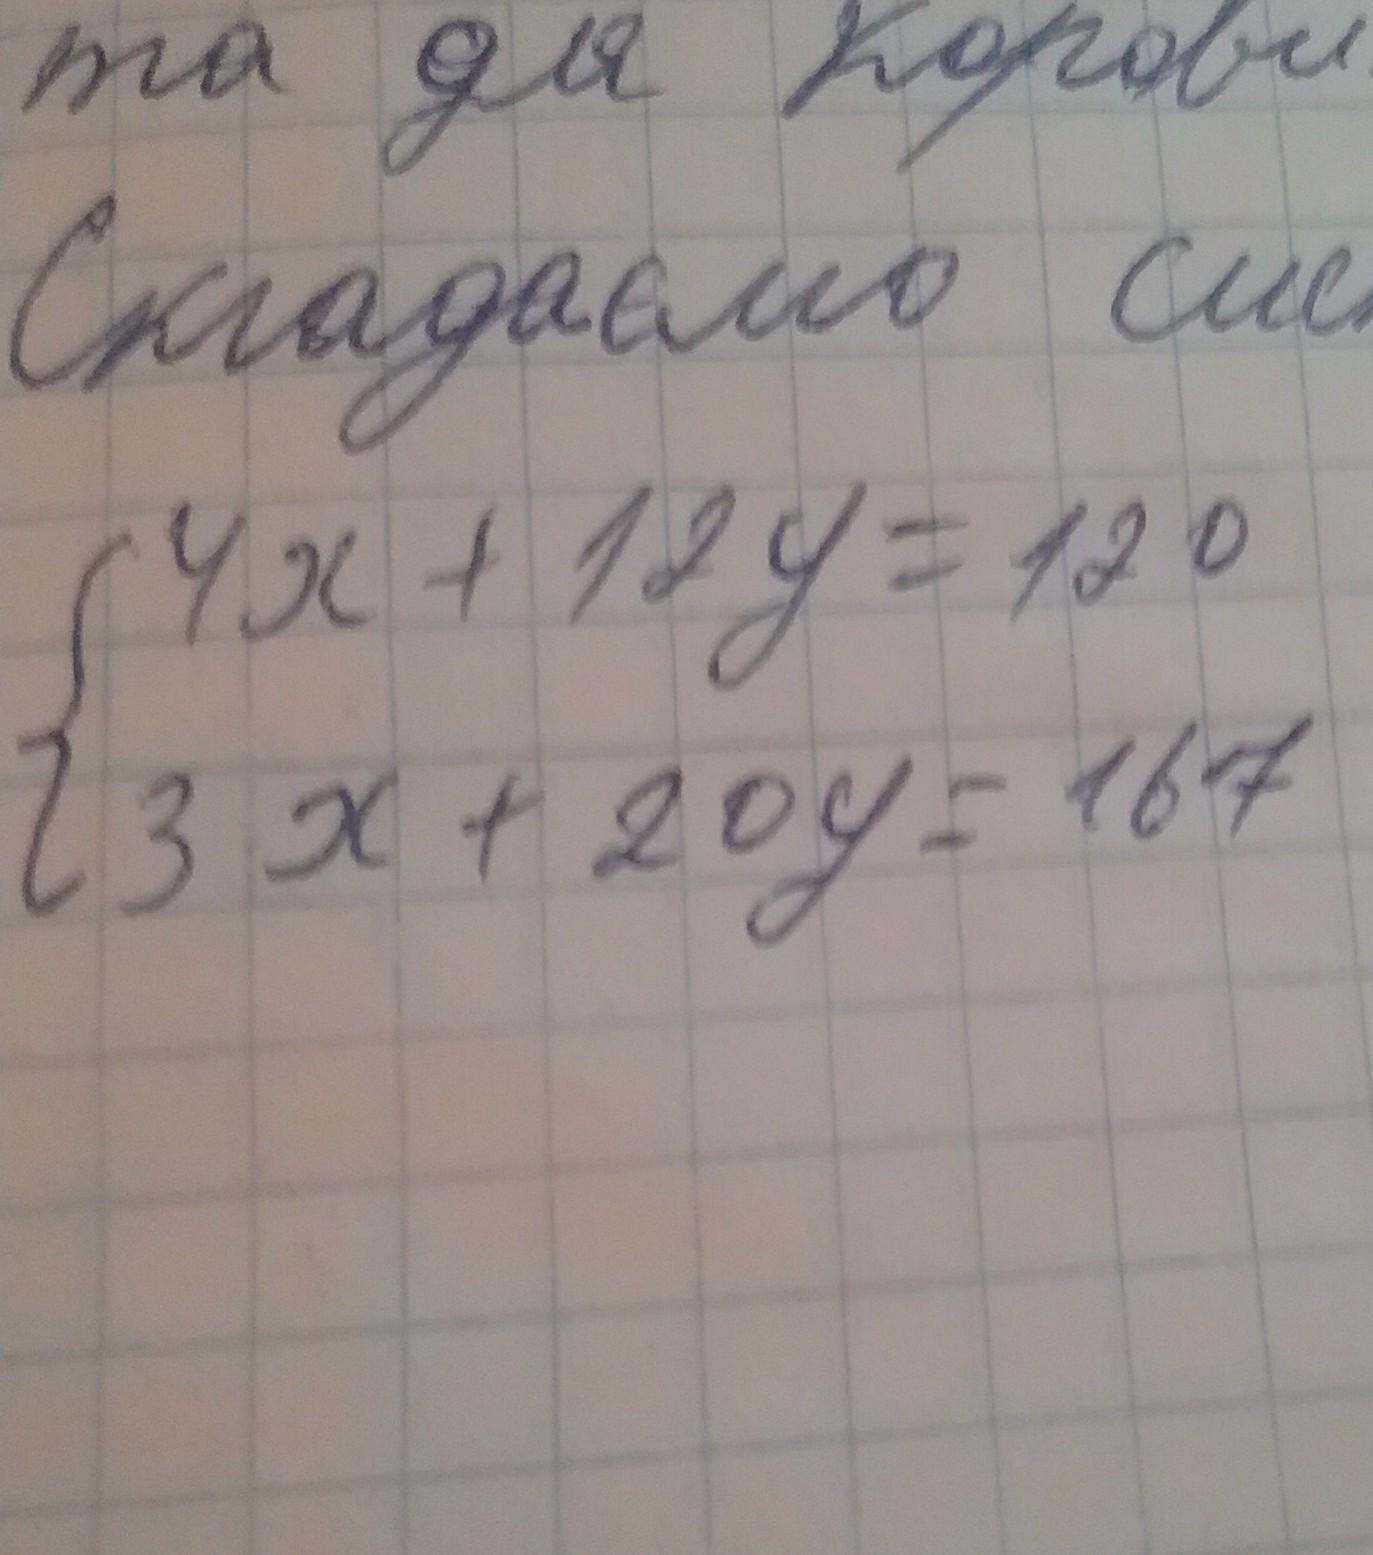 та для корови
Складаємо сис
4x + 12y = 120
3x + 20y = 167